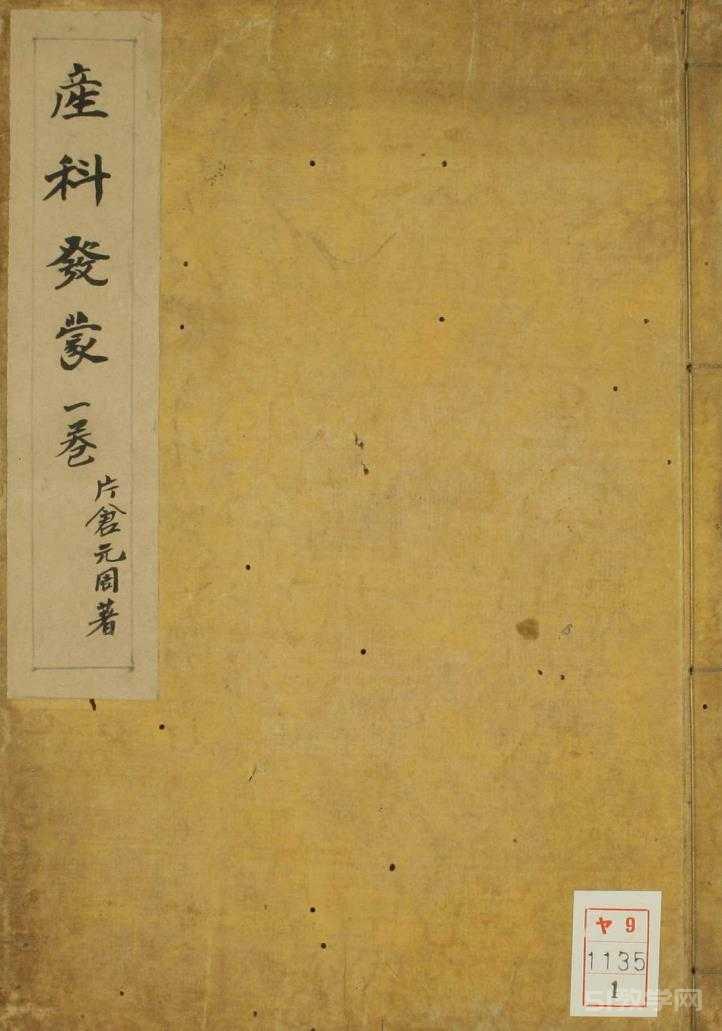 産科發蒙 一巻
片倉元周著
ヤ 9
1135
1
51教学网